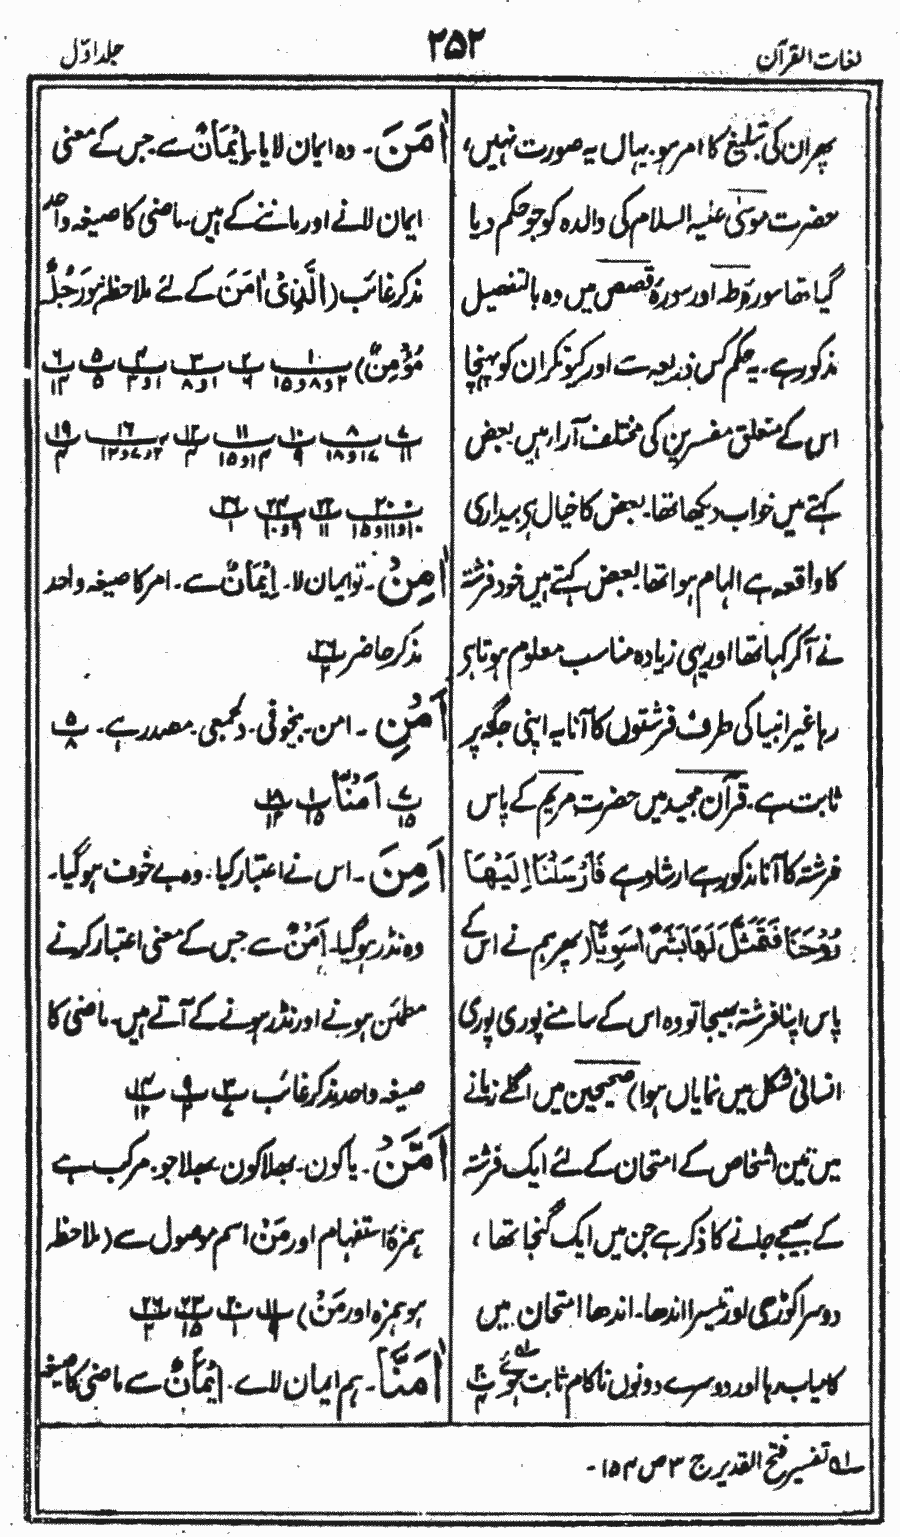 لغات القرآن
۲۵۲
جلد اوّل
پھر ان کی تبلیغ کا امر ہو۔ یہاں یہ صورت نہیں،
حضرت موسیٰ علیہ السلام کی والدہ کو جو حکم دیا
گیا تھا سورۂ طہ اور سورۂ قصص میں وہ بالتفصیل
مذکور ہے۔ یہ حکم کس ذریعہ سے اور کیونکر ان کو پہنچا
اس کے متعلق مفسرین کی مختلف آراء ہیں بعض
کہتے ہیں خواب دیکھا تھا۔ بعض کا خیال ہے بیداری
کا واقعہ ہے الہام ہوا تھا بعض کہتے ہیں خود فرشتہ
نے آکر کہا تھا اور یہی زیادہ مناسب معلوم ہوتا ہے
رہا غیر انبیا کی طرف فرشتوں کا آنا یہ اپنی جگہ پر
ثابت ہے۔ قرآن مجید میں حضرت مریم کے پاس
فرشتہ کا آنا مذکور ہے ارشاد ہے فَاَرْسَلْنَا اِلَيْهَا
رُوْحَنَا فَتَمَثَّلَ لَهَا بَشَرًا سَوِيًّا (پھر ہم نے اس کے
پاس اپنا فرشتہ بھیجا تو وہ اس کے سامنے پوری پوری
انسانی شکل میں نمایاں ہوا) صحیحین میں اگلے زمانے
میں تین اشخاص کے امتحان کے لئے ایک فرشتہ
کے بھیجے جانے کا ذکر ہے جن میں ایک گنجا تھا،
دوسرا کوڑھی اور تیسرا اندھا۔ اندھا امتحان میں
کامیاب رہا اور دوسرے دونوں ناکام ثابت ہوئے
اٰمَنَ۔ وہ ایمان لایا۔ اِیْمَانٌ سے جس کے معنی
ایمان لانے اور ماننے کے ہیں۔ ماضی کا صیغہ واحد
مذکر غائب (الَّذِیْ اٰمَنَ کے لئے ملاحظہ ہو رَجُلٌ
مُؤْمِنٌ) ۱۰ ۲ و ۸ و ۱۵ ۲ ۹ ۳ ۱ و ۸ ۵ ۵ ۶
۷ ۱۱ ۸ ۱۰ ۹ ۱۱ ۱۲ ۱۶ ۱۹
۲۰ ۲۲ ۱۱ ۲۶ ۱
اٰمِنْ۔ تو ایمان لا۔ اِیْمَانٌ سے۔ امر کا صیغہ واحد
مذکر حاضر ۲۶ ۲
اَمْنِ۔ امن۔ بیخوفی۔ دلجمعی۔ مصدر ہے۔ ۵ ۸
۷ ۱۵ اَمْنًا ۱ ۱۵ ۱۸ ۱۳
اَمِنَ۔ اس نے اعتبار کیا۔ وہ بے خوف ہو گیا۔
وہ نڈر ہو گیا۔ اَمْنٌ سے جس کے معنی اعتبار کرنے
مطمئن ہونے اور نڈر ہونے کے آتے ہیں۔ ماضی کا
صیغہ واحد مذکر غائب ۳ ۷ ۹ ۲ ۱۳
اَمَّنْ۔ یا کون۔ بھلا کون۔ بھلا جو۔ مرکب ہے
ہمزۂ استفہام اور مَنْ اسم موصول سے (ملاحظہ
ہو ہمزہ اور مَنْ) ۱۱ ۹ ۲۰ ۱ ۲۳ ۱۵ ۲۶ ۲
اٰمَنَّا۔ ہم ایمان لائے۔ اِیْمَانٌ سے ماضی کا صیغہ
لہ تفسیر فتح القدیر ج ۳ ص ۱۵۴۔